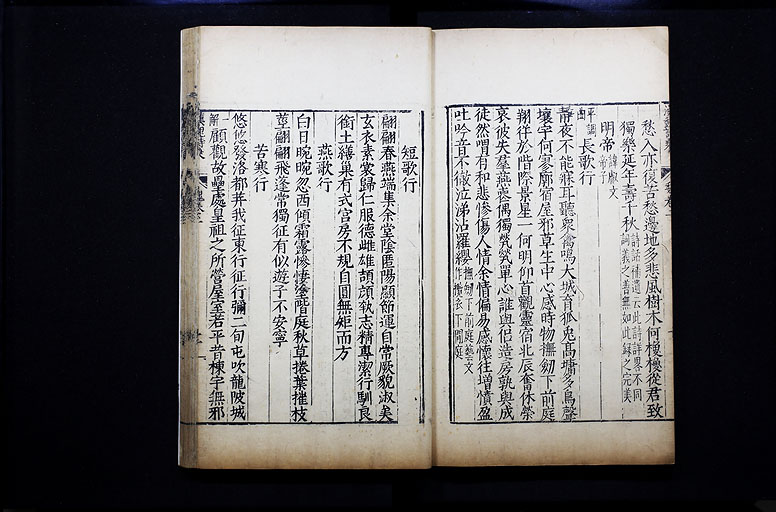 愁入亦復苦愁邊地多悲風樹木何榱榱從君致
獨樂延年壽千秋詩話補遺云此詩詳畧不同
詞義之善無如此錄之完美
明帝諱叡文
帝子
平調
曲
長歌行
靜夜不能寐耳聽衆禽鳴大城育狐兔高墉多鳥聲
壞宇何寥廓宿屋邪草生中心感時物撫劒下前庭
翔徉於階際景星一何明仰首觀靈宿北辰奮休榮
哀彼失羣燕喪偶獨煢煢單心誰與侶造房孰與成
徒然喟有和悲慘傷人情余情偏易感懷往增憤盈
吐吟音不徹泣涕沾羅纓撫劒下前庭藝文
作攬衣下閒庭
短歌行
翩翩春燕端集余堂陰匿陽顯節運自常厥貌淑美
玄衣素裳歸仁服德雌雄頡頏執志精專潔行馴良
銜土繕巢有式宮房不規自圓無矩而方
燕歌行
白日晼晼忽西傾霜露慘悽塗階庭秋草捲葉摧枝
莖翩翩飛蓬常獨征有似遊子不安寧
苦寒行
悠悠發洛都莽我征東行征行彌二旬屯吹龍陂城
一
解顧觀故壘處皇祖之所營屋室若平昔棟宇無邪